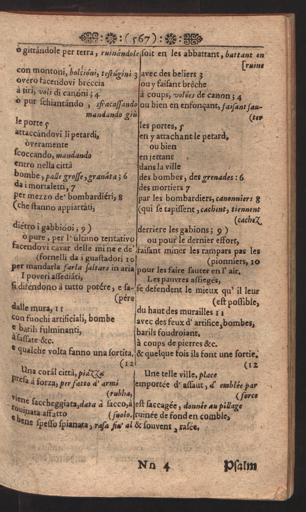 :(567):
ò gittándole per terra, ruinándole
con montoni, bolcióni, testúgini 3
overo facendovi breccia
à tiri, voli di canóni; 4
ò pur schiantándo, sfracassándo
mandando giù
le porte 5
attaccándovi li petardi,
óveramente
scoccando, mandando
entro nella città
bombe, palle grosse, granáta; 6
da i mortaletti, 7
per mezzo de' bombardiéri, 8
(che stanno appiattáti,
diétro i gabbióni; 9)
ò pure, per l'ultimo tentativo
facendovi cavar delle mine de'
(fornelli da i guastadori 10
per mandarla farla saltare in aria
I poveri assediáti,
si difendóno à tutto potére, e fa-
(pére
dalle mura, 11
con fuochi artificiali, bombe
e barili fulminanti,
à sassate &c.
e qualche volta fanno una sortita,
(12
Una coral città, piazza
presa à forza, per fatto d'armi
(rubba,
viene saccheggiata, data à sacco, à
rovinata affatto
(suolo,
e bene spesso spianata, rasa fin' al
soit en les abbattant, battant en
[ruine
avec des beliers 3
ou y faisant brêche
à coups, volées de canon; 4
ou bien en enfonçant, faisant sau-
(ter
les portes, 5
en y attachant le petard,
ou bien
en jettant
dans la ville
des bombes, des grenades: 6
des mortiers 7
par les bombardiers, canonniers 8
(qui se tapissent, cachent, tiennent
(cachez
derriere les gabions; 9)
ou pour le dernier effort,
faisant miner les rampars pas les
(pionniers, 10
pour les faire sauter en l' air.
Les pauvres assiegés,
se defendent le mieux qu' il leur
(est possible,
du haut des murailles 11
avec des feux d' artifice, bombes,
barils foudroiant,
à coups de pierres &c.
& quelque fois ils font une sortie,
(12
Une telle ville, place
emportée d' assaut, & emblée par
(force
est saccagée, donnée au pillage
ruinée de fond en comble,
& souvent, rasée.
Nn 4
Psalm